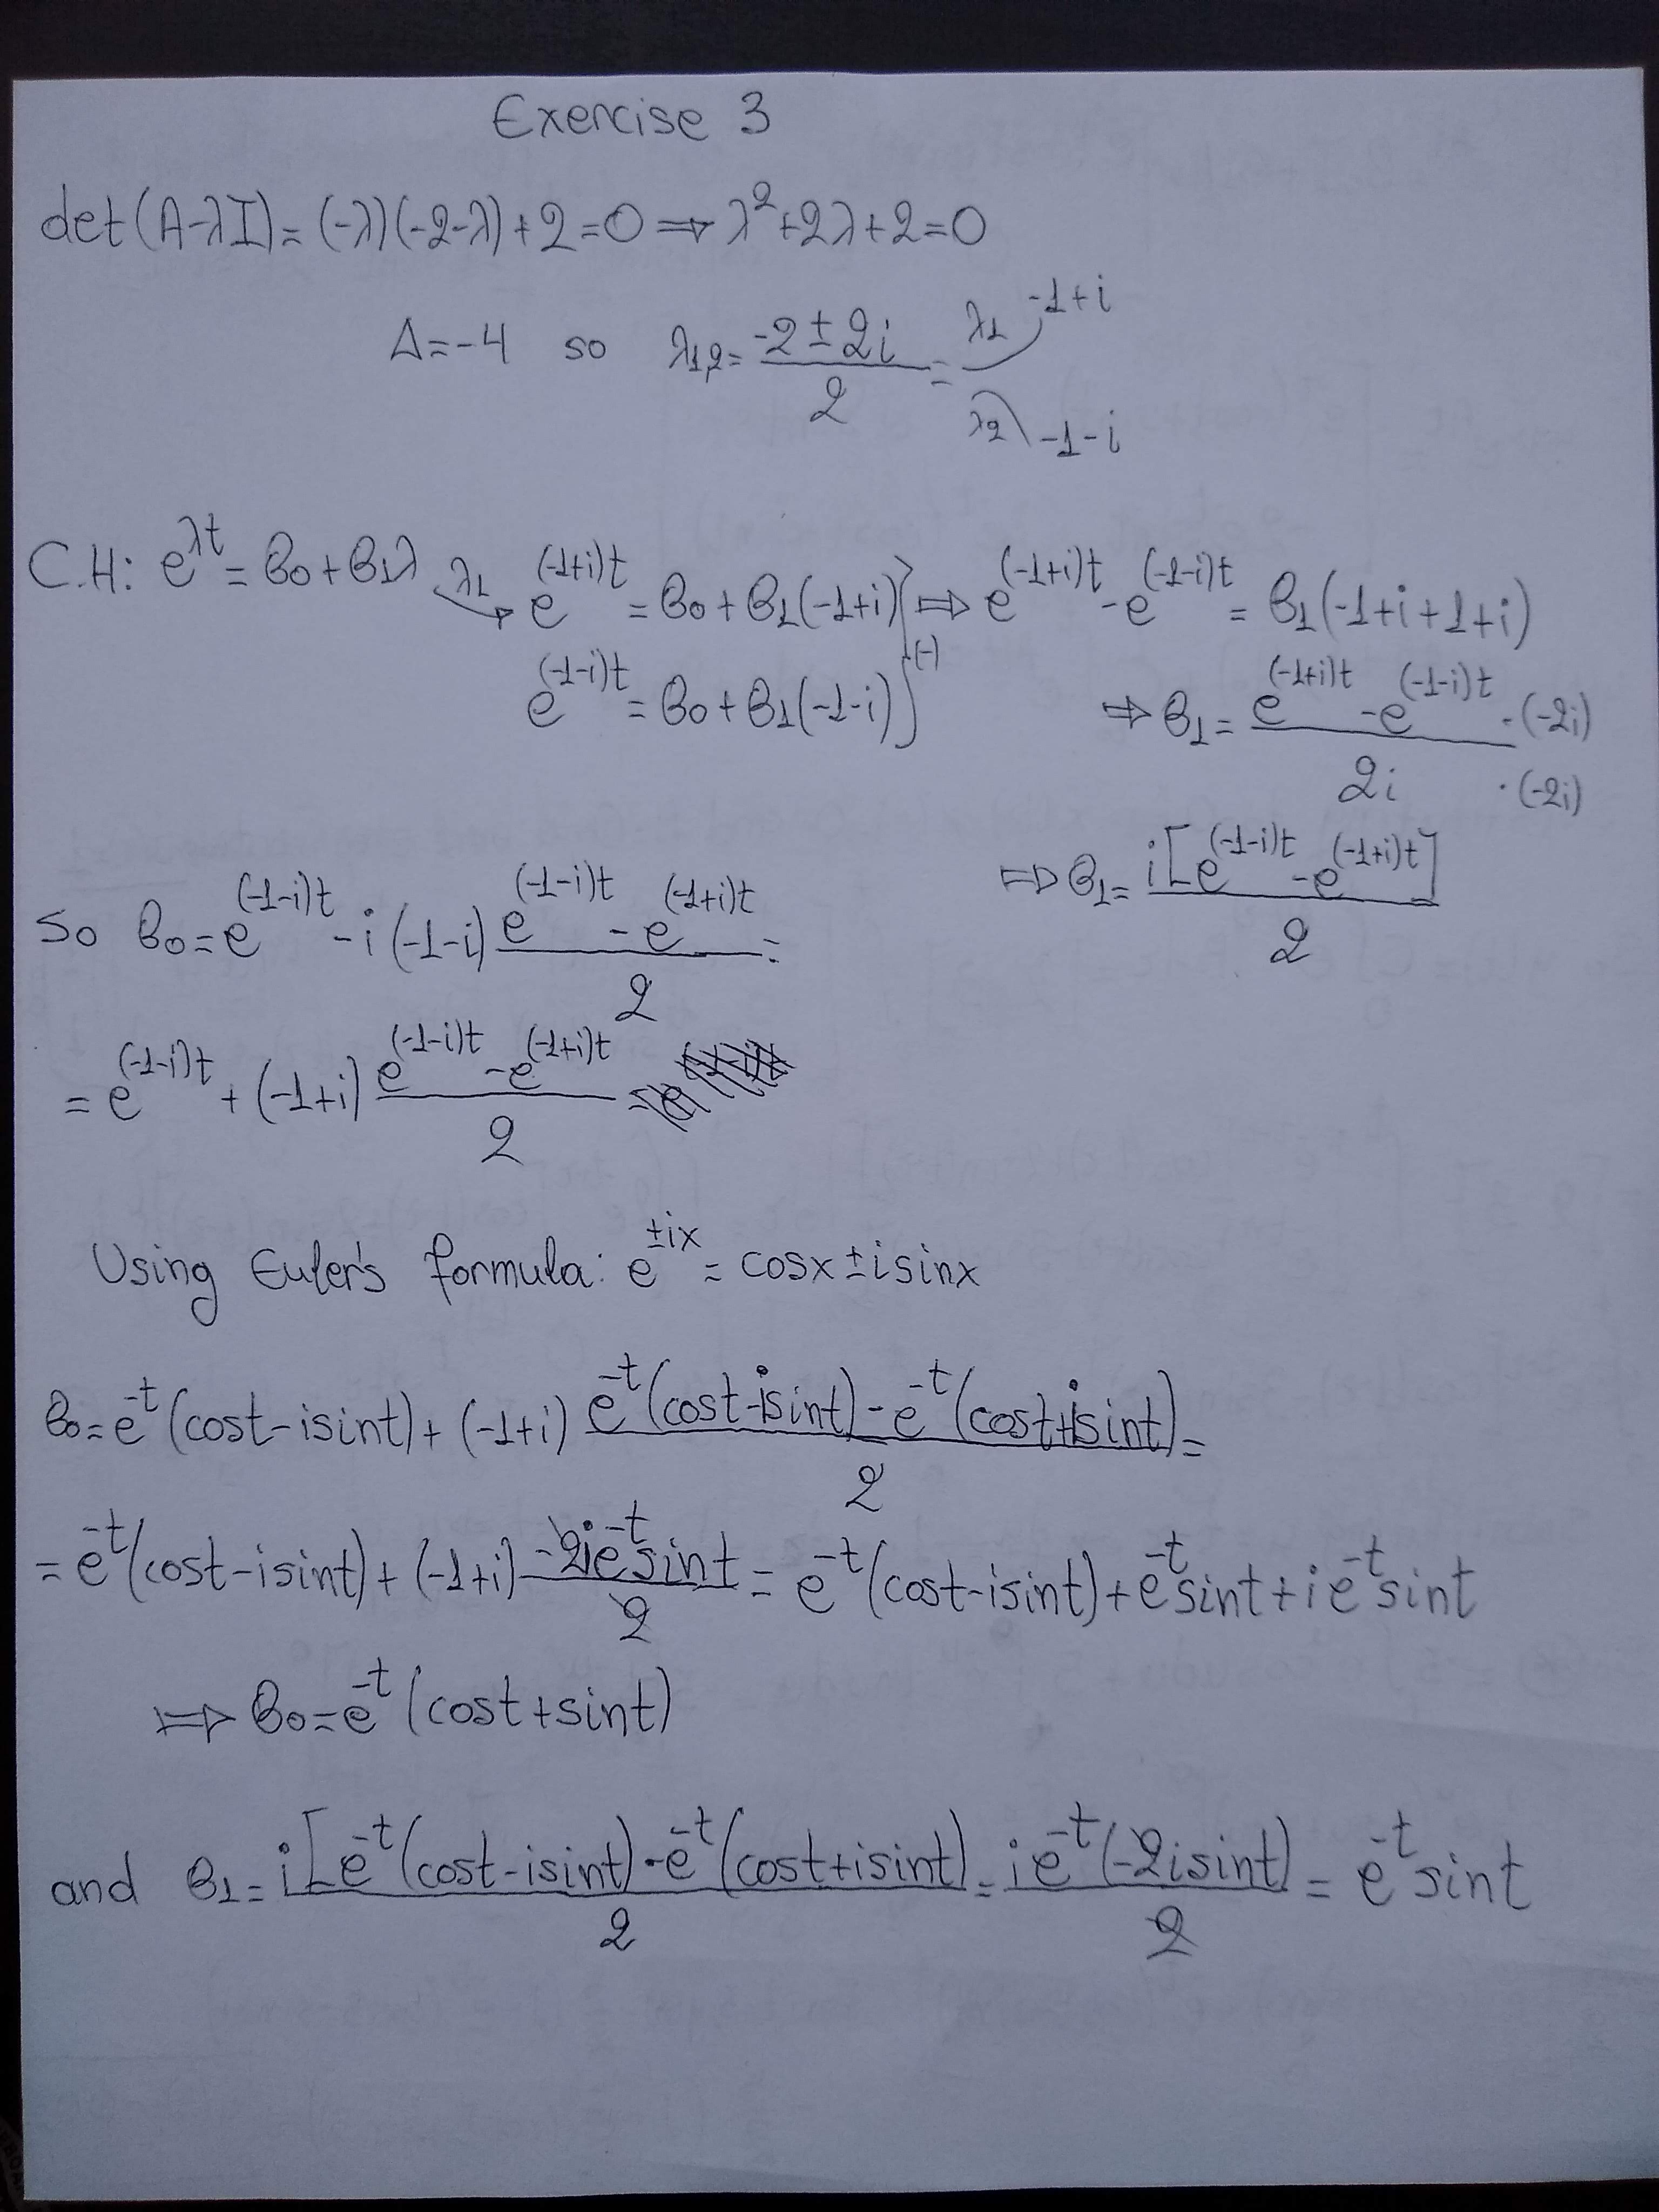 Exercise 3
det(A-λI)=(-λ)(-2-λ)+2=0 ⇒ λ²+2λ+2=0
Δ=-4 so λ₁,₂= (-2±2i)/2 = λ₁ -1+i
λ₂ -1-i
C.H: e^(λt) = B₀+B₁λ λ₁→ e^((-1+i)t) = B₀+B₁(-1+i) ⇒ e^((-1+i)t) - e^((-1-i)t) = B₁(-1+i+1+i)
e^((-1-i)t) = B₀+B₁(-1-i) (-) ⇒ B₁= (e^((-1+i)t) - e^((-1-i)t))/(2i) ·(-2i) ·(-2i)
⇒ B₁= i[e^((-1-i)t) - e^((-1+i)t)]/2
so B₀= e^((-1-i)t) - i(-1-i) (e^((-1-i)t) - e^((-1+i)t))/2 =
= e^((-1-i)t) + (-1+i) (e^((-1-i)t) - e^((-1+i)t))/2
Using Euler's formula: e^(±ix) = cosx±isinx
B₀= e^(-t)(cost-isint)+(-1+i) (e^(-t)(cost-isint)-e^(-t)(cost+isint))/2 =
= e^(-t)(cost-isint)+(-1+i) (-2ie^(-t)sint)/2 = e^(-t)(cost-isint)+e^(-t)sint+ie^(-t)sint
⇒ B₀=e^(-t)(cost+sint)
and B₁= i[e^(-t)(cost-isint)-e^(-t)(cost+isint)/2 = ie^(-t)(-2isint)/2 = e^(-t)sint